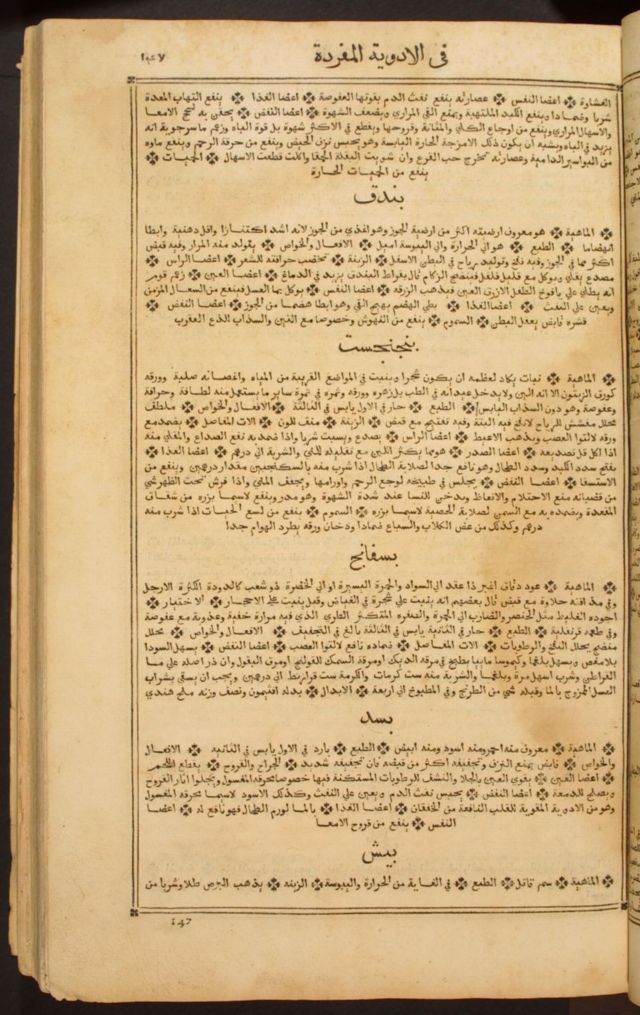 في الادوية المفردة ١٤٧
الغشاوة ※ اعضا النفس ※ عصارته ينفع نفث الدم بقوتها العفوصة ※ اعضا الغذا ※ ينفع التهاب المعدة
شربا وضمادا وينفع الكبد الملتهبة ويمنع القي المراري ويضعف الشهوة ※ اعضا النفض ※ يحقن به لسحج الامعا
والاسهال المراري وينفع من اوجاع الكلي والمثانة وقروحها ويقطع في الاكثر شهوة بل قوة الباه وزعم ماسرجويه انه
يزيد في الباه ويشبه ان يكون ذلك الامزجة الحارة اليابسة وهو يحبس نزف الحيض وينفع من حرقة الرحم وينفع ماوه
من البواسير الدامية وعصارته تخرج حب القرع وان شويت البقلة الحمقا واكلت قطعت الاسهال ※ الحميات ※
ينفع من الحميات الحارة
بندق
※ الماهية ※ هو معروف ارضيته اكثر من ارضية الجوز وهو اغذي من الجوز لانه اشد اكتنازا واقل دهنية وابطا
انهضاما ※ الطبع ※ هو الي الحرارة والي اليبوسة اميل ※ الافعال والخواص ※ يتولد منه المرار وفيه قبض
اكثر مما في الجوز وفيه نفخ وتوليد رياح في البطن الاسفل ※ الزينة ※ تخضب حراقته للشعر ※ اعضا الراس ※
مصدع يقلي ويوكل مع قليل فلفل فينضج الزكام قال بقراط البندق يزيد في الدماغ ※ اعضا العين ※ زعم قوم
انه يطلي علي يافوخ الطفل الازرق العين فيذهب الزرقه ※ اعضا النفس ※ يوكل بما العسل فينفع من السعال المزمن
ويعين علي النفث ※ اعضا الغذا ※ بطي الهضم يهيج القي وهو ابطا هضما من الجوز ※ اعضا النفض ※
قشره قابض يعقل البطن ※ السموم ※ ينفع من النهوش وخصوصا مع التين والسذاب للذع العقرب
بنجنجست
※ الماهية ※ نبات يكاد لعظمه ان يكون شجرا وينبت في المواضع القريبة من المياه واغصانه صلبة وورقه
كورق الزيتون الا انه الين ولا يدخل عيدانه في الطب بل زهره وورقه وثمره في ثمرة ساير ما يستعمل منه لطافة وحرافة
وعفوصة وهو دون السذاب اليابس ※ الطبع ※ حار في الاولي يابس في الثالثة ※ الافعال والخواص ※ ملطف
محلل مفشش للرياح لا نفخ فيه البتة وفيه تفتيح مع قبض ※ الزينة ※ منق للون ※ الات المفاصل ※ يضمد مع
ورقه لالتوا العصب ويذهب الاعيا ※ اعضا الراس ※ يصدع ويسبت شربا واذا ضمد به نفع الصداع والمقلي منه
اذا اكل قل تصديعه ※ اعضا الصدر ※ هو مما يكثر اللبن مع تقليله للمني والشربة الي درهم ※ اعضا الغذا ※
يفتح سدد الكبد وسدد الطحال وهو نافع جدا لصلابة الطحال اذا شرب منه بالسكنجبين مقدار درهمين وينفع من
الاستسقا ※ اعضا النفض ※ يجلس في طبيخه لوجع الرحم واورامها ويجفف المني واذا فرش تحت الظهر شي
من قضبانه منع الاحتلام والانعاظ ويدخن النسا عند شدة الشهوة وهو مدر وينفع لاسيما بزره من شقاق
المقعدة ويضمد به مع السمن لصلابة الخصية لاسيما بزره ※ السموم ※ ينفع من لسع الحيات اذا شرب منه
درهم وكذلك من عض الكلاب والسباع ضمادا ودخان ورقه يطرد الهوام جدا
بسفانج
※ الماهية ※ عود دقاق اغبر ذا عقد الي السواد والحمرة اليسيرة او الي الخضرة ذو شعب كالدودة الكثيرة الارجل
وفي مذاقه حلاوة مع قبض قال بعضهم انه ينبت علي شجرة في الغياض وقيل ينبت علي الاحجار ※ الاختيار ※
اجوده الغليظ مثل الخنصر والضارب الي الحمرة والصفرة المتكثر الطري الذي فيه مرارة خفية وعذوبة مع عفوصة
وفي طعمه قرنفلية ※ الطبع ※ حار في الثانية يابس في الثالثة بالغ في التجفيف ※ الافعال والخواص ※ محلل
منضج يحلل النفخ والرطوبات ※ الات المفاصل ※ ضماده نافع لالتوا العصب ※ اعضا النفض ※ يسهل السودا
بلا مغص ويسهل بلغما وكيموسا مايبا يطبخ في مرقة الديك او مرقة السمك للقولنج او مرق البقول وان ذر اصله علي ما
القراطن وشرب اسهل مرة وبلغما والشربة منه ست كرمات والكرمة ست قراريط الي درهمين ويجب ان يسقي بشراب
العسل الممزوج بالما وقبله شي من الطريخ وفي المطبوخ الي اربعة ※ الابدال ※ بدله افتيمون ونصف وزنه ملح هندي
بسد
※ الماهية ※ معروف منه احمر ومنه اسود ومنه ابيض ※ الطبع ※ بارد في الاول يابس في الثانية ※ الافعال
والخواص ※ قابض يمنع النزف وتجفيفه اكثر من قبضه فان تجفيفه شديد ※ الجراح والقروح ※ يقطع اللحم
※ اعضا العين ※ يقوي العين بالجلا والنشف للرطوبات المستكنة فيها خصوصا محرقه المغسول ويجلوا اثار القروح
ويصلح للدمعة ※ اعضا النفس ※ يحبس نفث الدم ويعين علي النفث وكذلك الاسود لاسيما محرقه المغسول
وهو من الادوية المقوية للقلب النافعة من الخفقان ※ اعضا الغذا ※ بالما لورم الطحال فهو نافع له ※ اعضا
النفس ※ ينفع من قروح الامعا
بيش
※ الماهية ※ سم قاتل ※ الطبع ※ في الغاية من الحرارة واليبوسة ※ الزينه ※ يذهب البرص طلا وشربا من
147